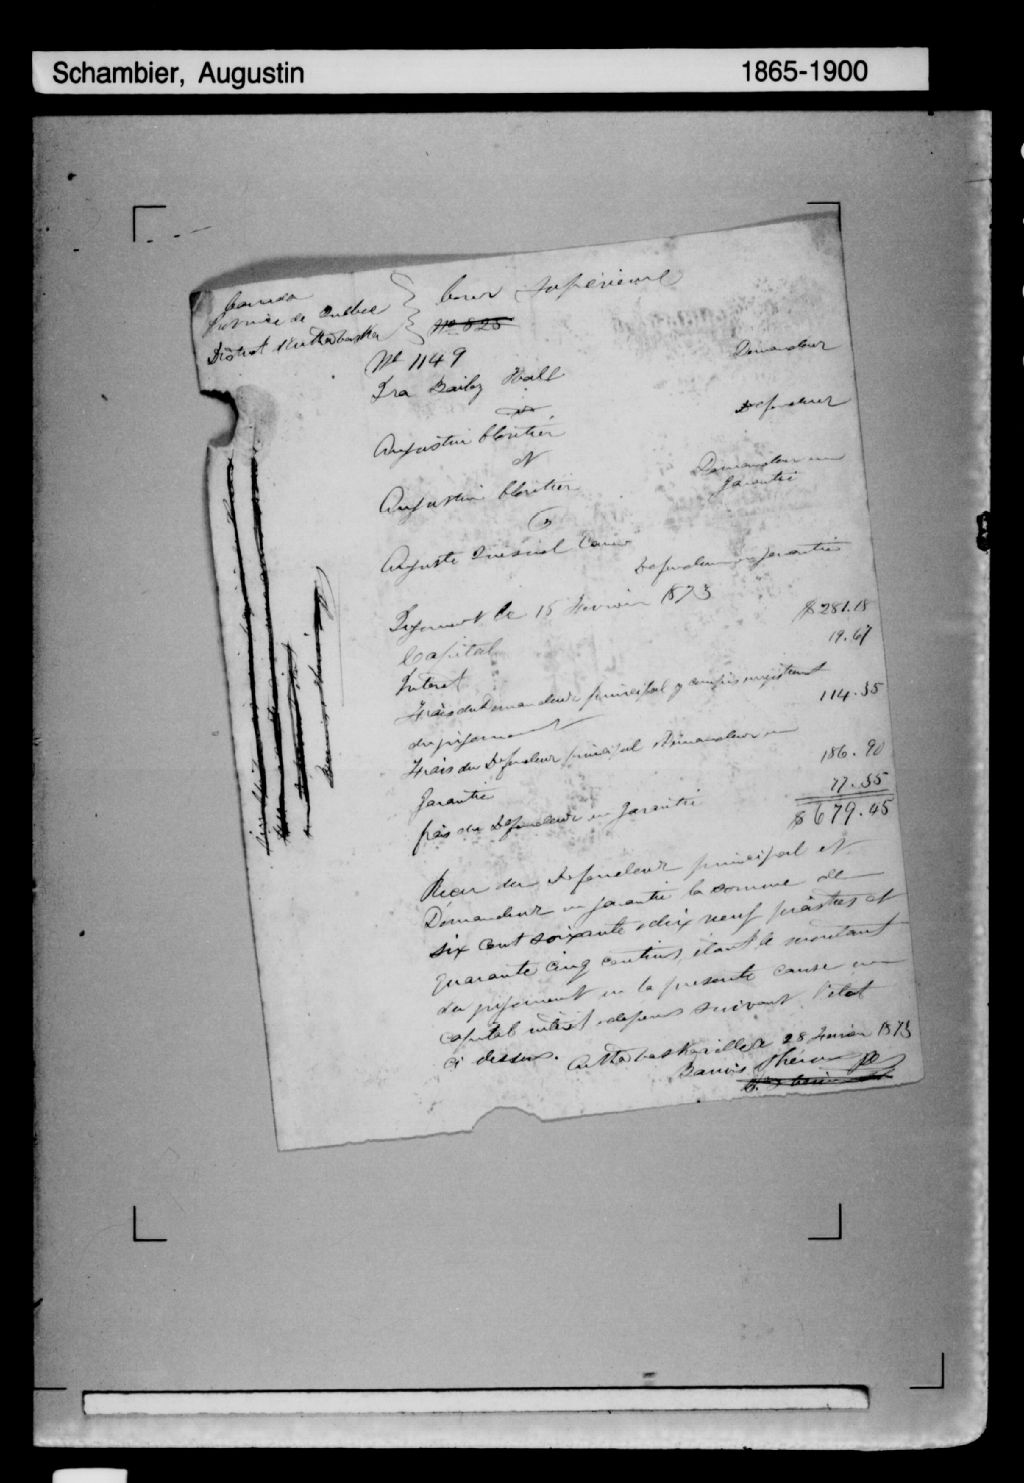 Schambier, Augustin 1865-1900
Canada
Province de Québec
District d'Arthabaska
Cour Supérieure
No 825
No 1149
Ira Bailey Hall Demandeur
vs
Augustin Cloutier Defendeur
et
Augustin Cloutier Demandeur en
garantie
vs
Auguste Quesnel
Defendeur en garantie
Jugement le 15 Fevrier 1873
Capital $281.18
Interet 19.67
Frais du Demandeur principal y compris
du jugement 114.35
Frais du Defendeur principal Demandeur en
garantie 186.90
frais du Defendeur en garantie 77.35
$679.45
Recu du Defendeur principal et
Demandeur en garantie la somme de
six cent soixante & dix neuf piastres et
quarante cinq centins, étant le montant
du jugement en la presente cause en
capital intérêt & depens suivant l'etat
ci dessus. Arthabaskaville 28 1873
Barwis